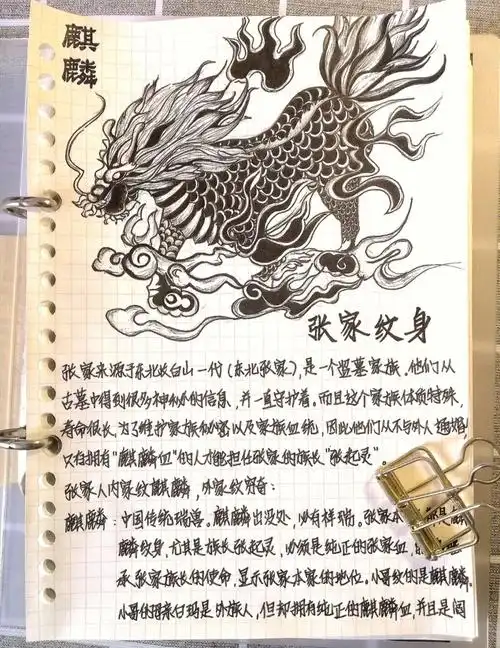 麒
麟
张家纹身
张家来源于东北长白山一代(东北张家),是一个盗墓家族,他们从
古墓中得到很多神秘的信息,并一直守护着。而且这个家族体质特殊,
寿命很长,为了维护家族秘密以及家族血统,因此他们从不与外人通婚,
只有拥有“麒麟血”的人才能担任张家的族长“张起灵”。
张家人内家纹麒麟,外家纹穷奇:
麒麟:中国传统瑞兽。麒麟出没处,必有祥瑞。张家本
麒麟纹身,尤其是族长张起灵,必须是纯正的张家血,
承张家族长的使命,显示张家本家的地位。小哥纹的是麒麟。
小哥的母亲白玛是外族人,但却拥有纯正的麒麟血,并且是阎